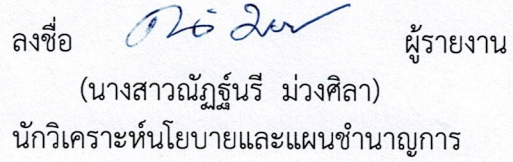 ลงชื่อ ผู้รายงาน
(นางสาวณัฏฐ์นรี ม่วงศิลา)
นักวิเคราะห์นโยบายและแผนชำนาญการ